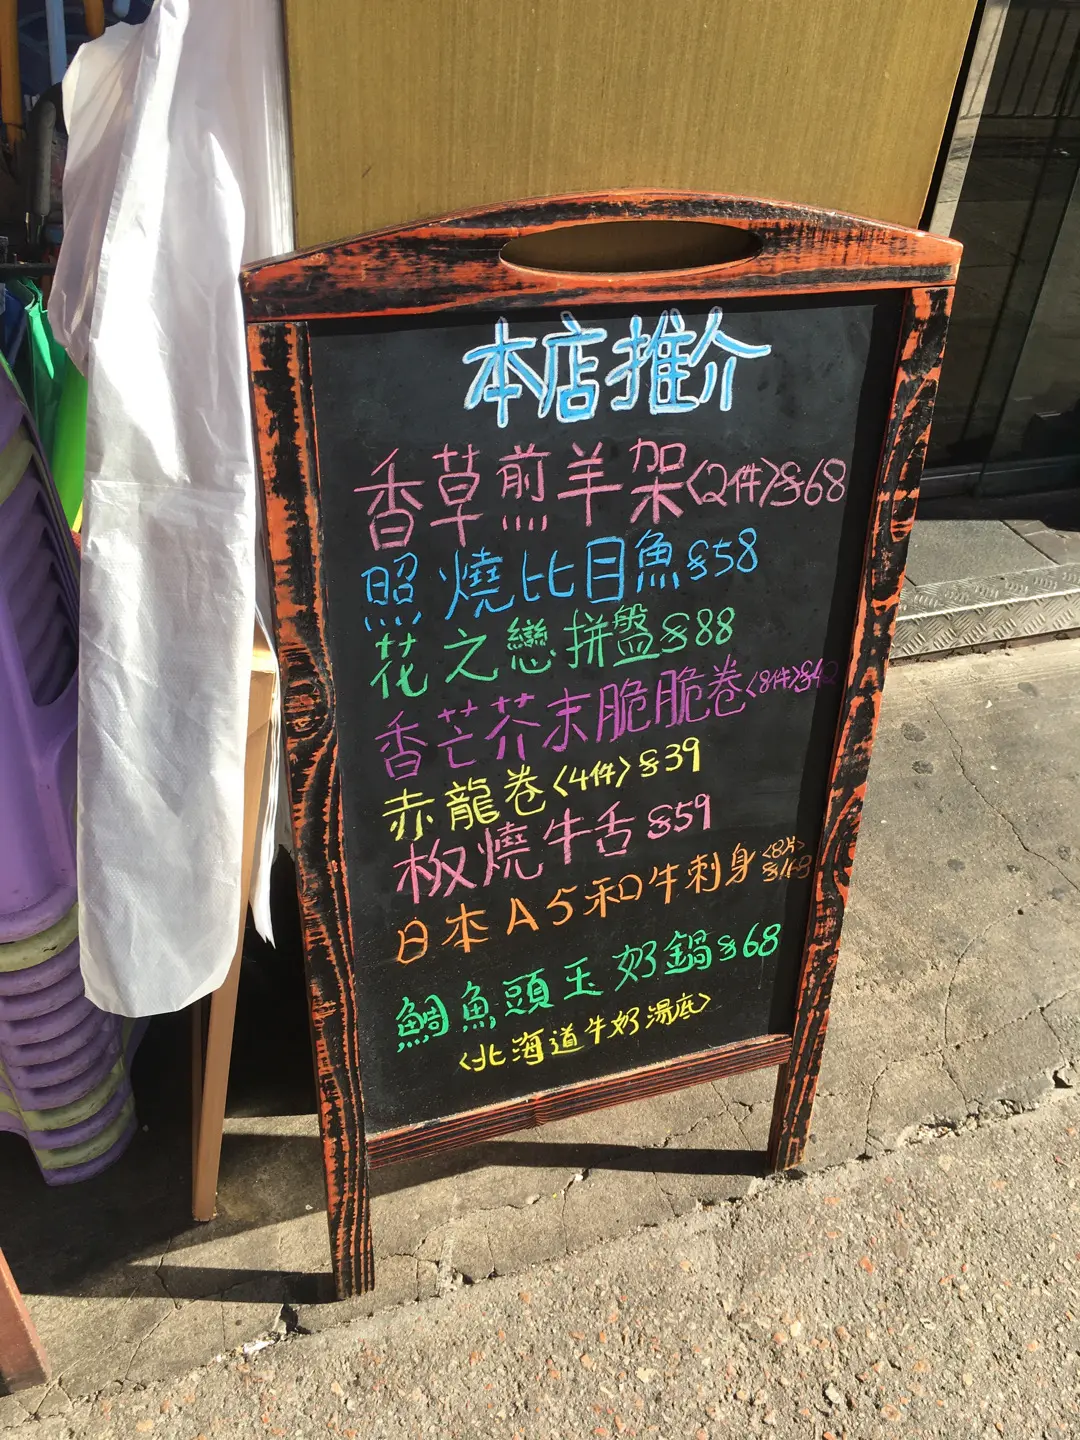 本店推介
香草煎羊架〈2件〉$68
照燒比目魚$58
花之戀拼盤$88
香芒芥末脆脆卷〈8件〉$42
赤龍卷〈4件〉$39
板燒牛舌$59
日本A5和牛刺身〈8片〉$168
鯛魚頭玉奶鍋$68
〈北海道牛奶湯底〉